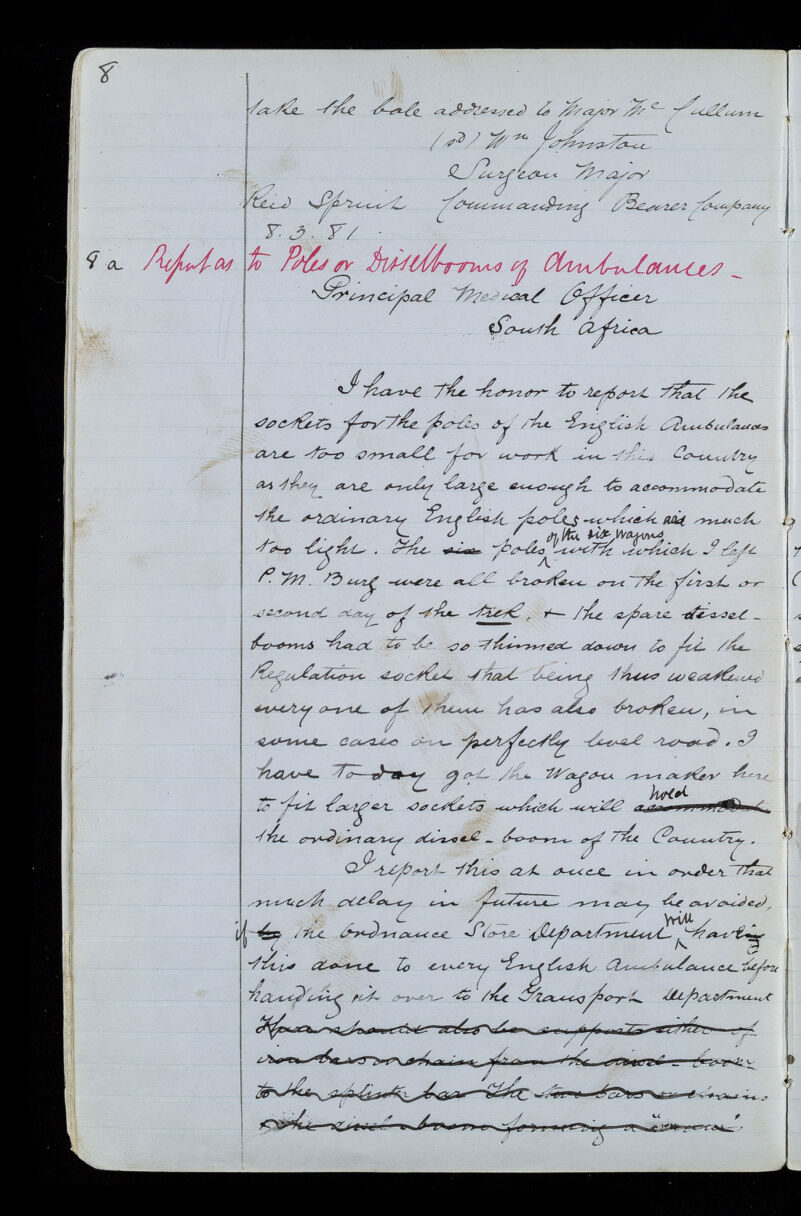 8
take the bale addressed to Major Mc Cullum
(sd) Wm Johnston
Surgeon Major
Reid Spruit Commanding Bearer Company
8.3.81
8a Report as to Poles or Disselbooms of Ambulances -
Principal Medical Officer
South Africa
I have the honor to report that the
sockets for the poles of the English Ambulances
are too small for work in this Country
as they are only large enough to accommodate
the ordinary English poles which are much
of the six wagons
too light. The six poles with which I left
P. M. Burg were all broken on the first or
second day of the trek. + the spare dissel-
booms had to be so thinned down to fit the
Regulation socket that being thus weakened
every one of them has also broken, in
some cases on perfectly level road. I
have today got the Wagon maker here
hold
to fit larger sockets which will accommodate
the ordinary dissel-boom of the Country.
I report this at once in order that
much delay in future may be avoided,
will
if by the Ordnance Store Department having
this done to every English Ambulance before
handing it over to the Transport Department
There should also be supports either of
iron bars or chain from the dissel-boom
to the splinter bar The two bars or chains
& the dissel-boom forming a